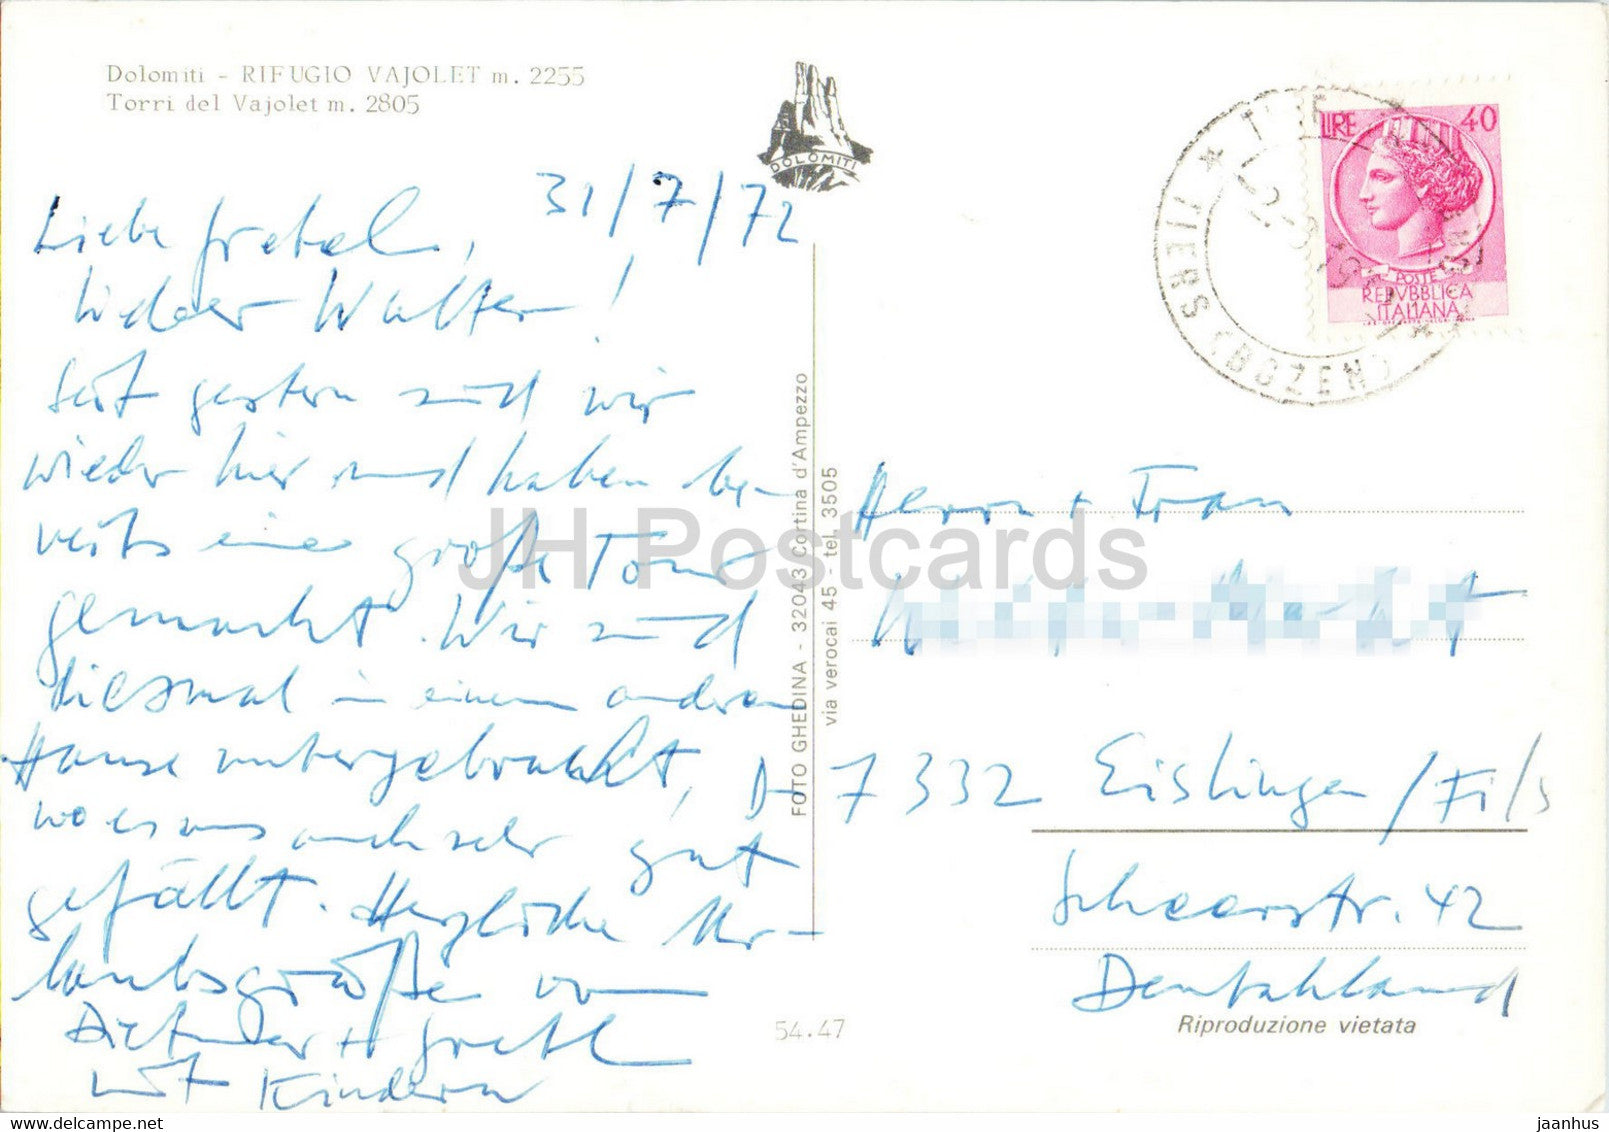 Dolomiti - RIFUGIO VAJOLET m. 2255
Torri del Vajolet m. 2805
DOLOMITI
31/7/72
Liebe Gretel,
lieber Walter!
Seit gestern sind wir
wieder hier und haben be-
reits eine große Tour
gemacht. Wir sind
diesmal in einem anderen
Hause untergebracht,
wo es uns auch sehr gut
gefällt. Herzliche Ur-
laubsgrüße von
Dietmar + Gretl
mit Kindern
FOTO GHEDINA - 32043 Cortina d'Ampezzo
via verocai 45 - tel. 3505
54.47
LIRE 40
POSTE
REPVBBLICA
ITALIANA
TIERS (BOZEN)
Herrn + Frau
D-7332 Eislingen/Fils
Scheerstr. 42
Deutschland
Riproduzione vietata
JH Postcards
jaanhus
delcampe.net